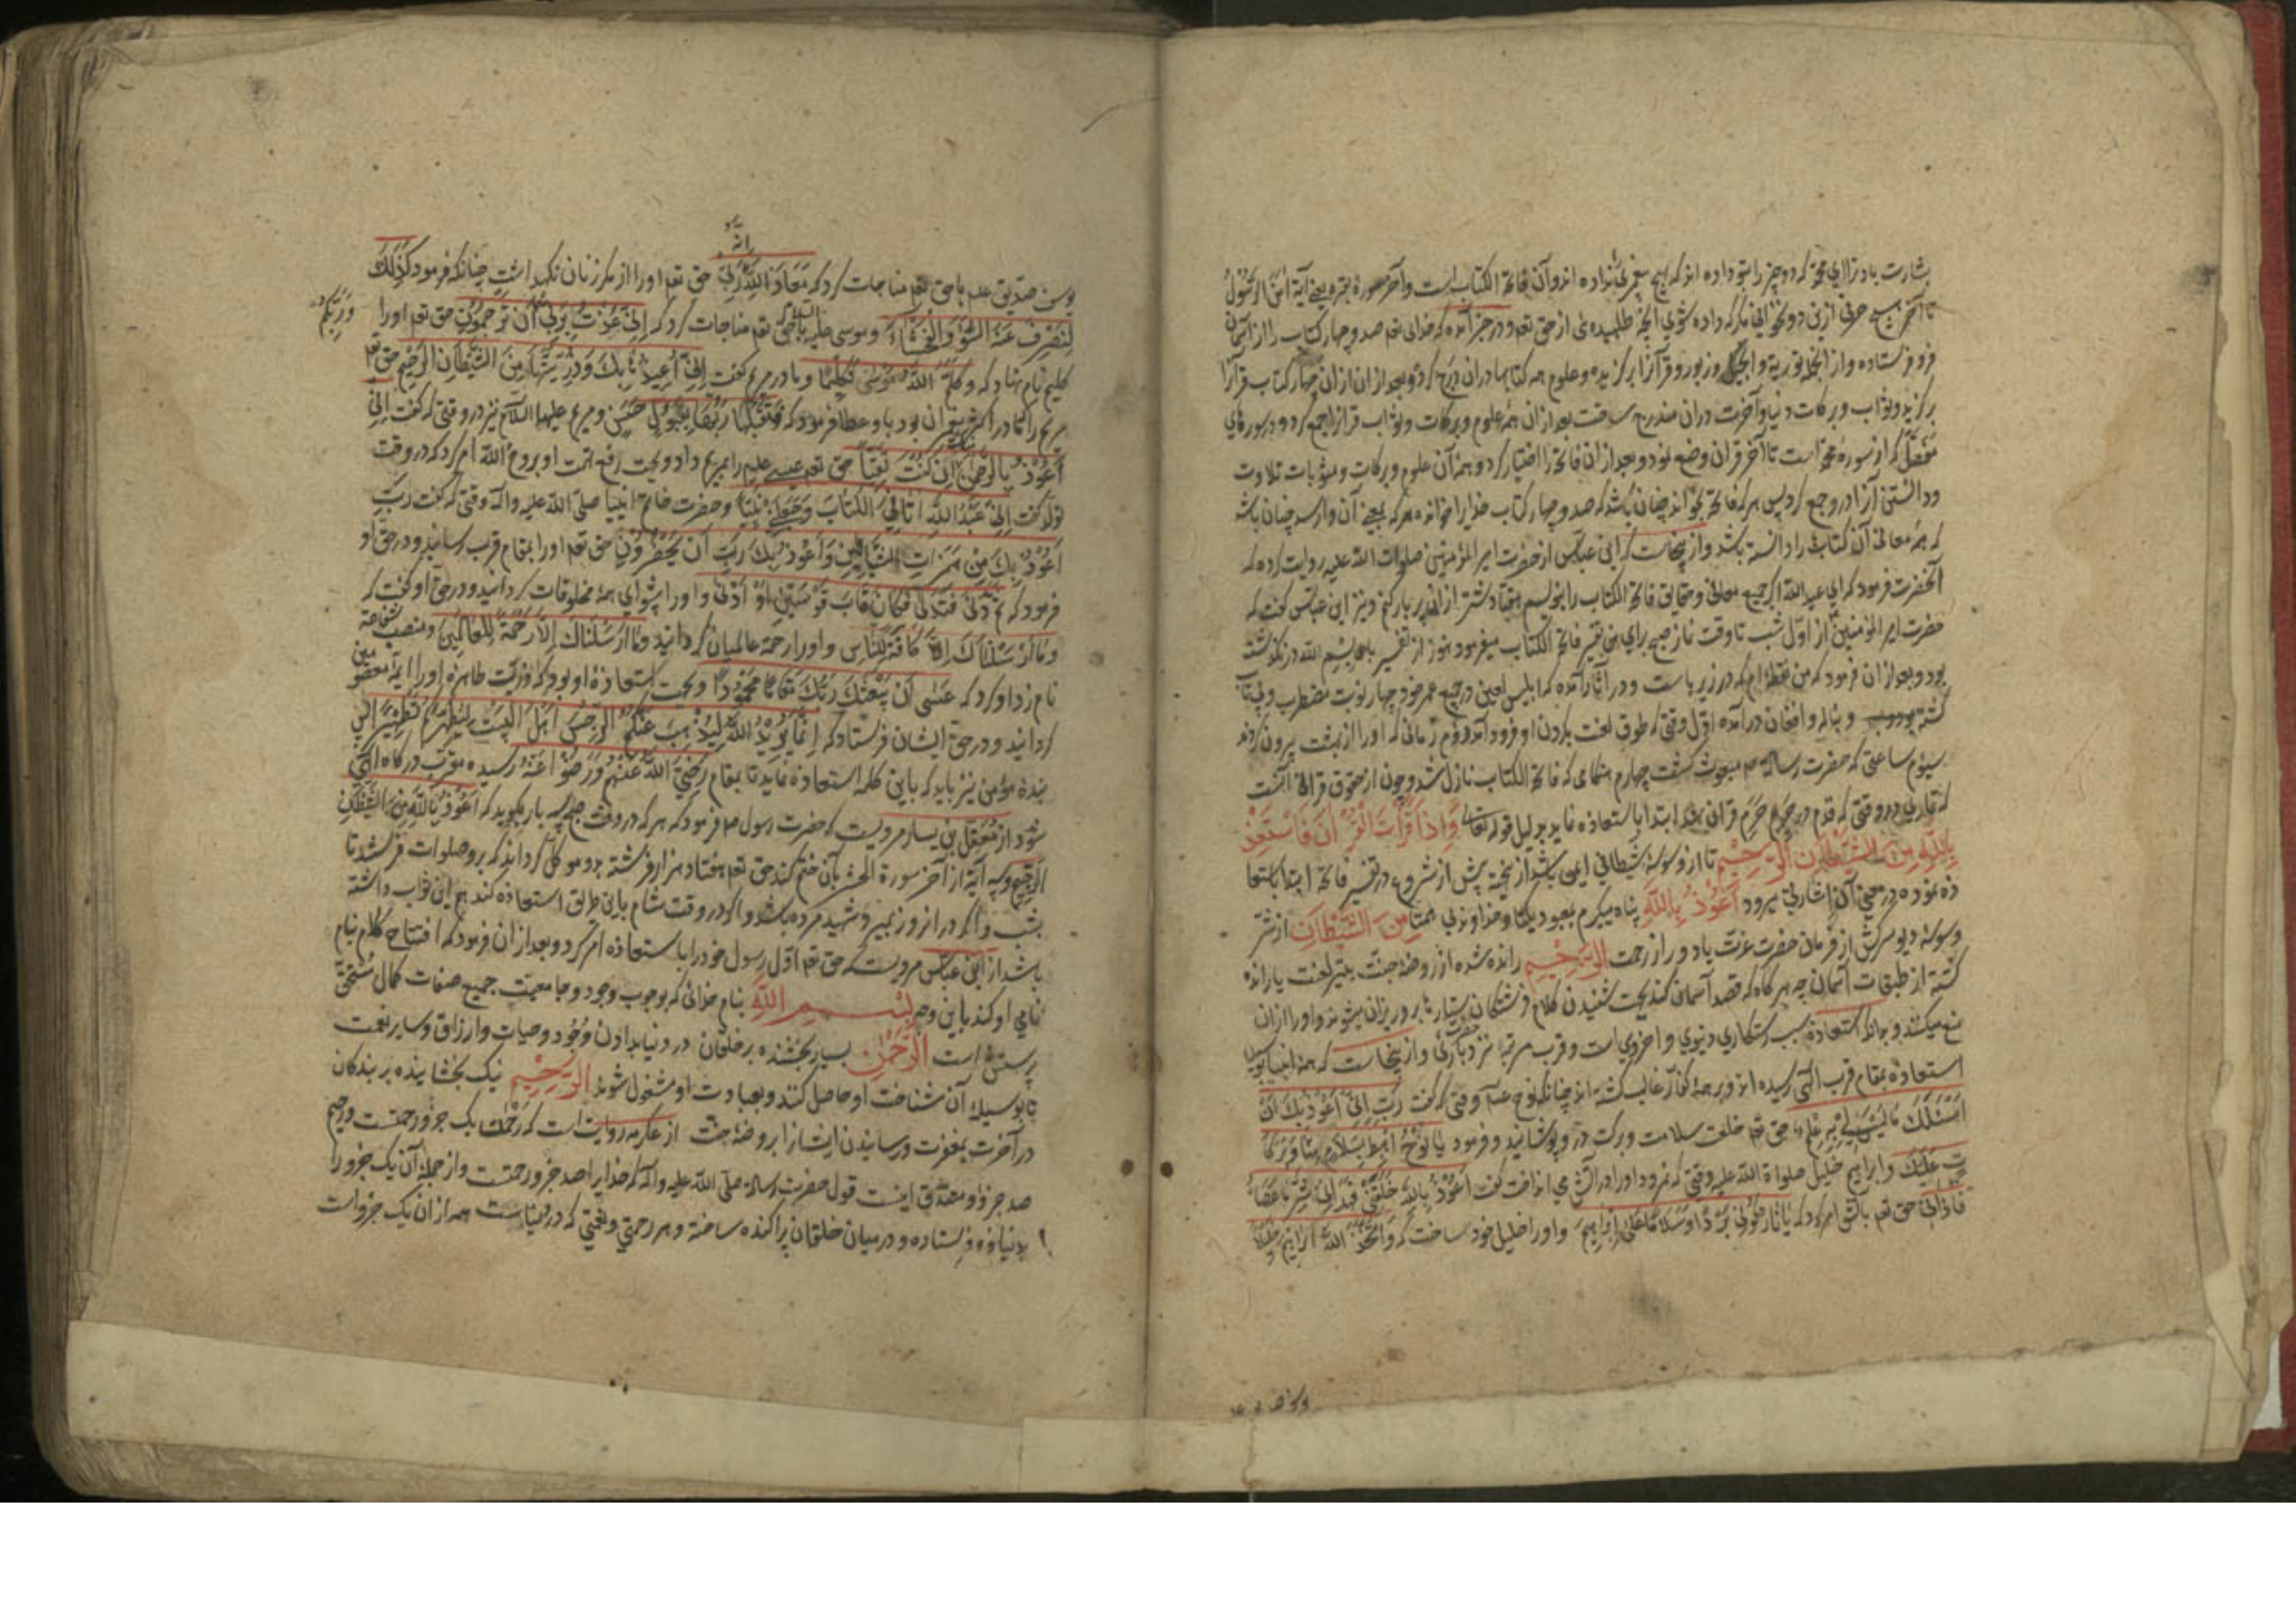 بشارت باد ترا ای محمّد که دو چیز را بتو داده اند که هیچ پیغمبری را نداده اند و آن فاتحة الکتاب است و آخر سورۀ بقره یعنی آیۀ امن الرسول
تا آخر حرفی ازین دو نخوانی مگر که داده شوی آنچه طلبیدۀ از حق تعم و در خبر آمده که خدای تعم صد و چهار کتاب را از آسمان
فرو فرستاده و از انجمله توریة و انجیل و زبور و قرآنرا برگزیده و علوم همه کتابها در ان درج کرد و بعد از ان ازان چهار کتاب قرآنرا
برگزید و ثواب و برکات دنیا و آخرت دران مندرج ساخت بعد ازان همه علوم و برکات و ثواب قرانرا جمع کرد و در سورهای
مُفَصَّل که از سورۀ محمّد است تا آخر قران وضع نمود و بعد از ان فاتحه را اختیار کرد و همه آن علوم و برکات و مثوبات تلاوت
و دانستن آنرا درو جمع کرد پس هر که فاتحه بخواند چنان باشد که صد و چهار کتاب خدایرا خوانده و هر که بمعنی آن وارسد چنان باشد
که همه معانی آن کتابها را دانسته باشد و ازینجاست که ابن عباس از حضرت امیر المؤمنین صلوات الله علیه روایت کرده که
آنحضرت فرمود که ای عبد الله اگر جمیع معانی و حقایق فاتحة الکتاب را بنویسم هفتاد شتر ازان پر بار کنم و نیز ابن عباس گفت که
حضرت امیر المؤمنین از اوّل شب تا وقت نماز صبح برای من تفسیر فاتحة الکتاب میفرمود هنوز از تفسیر باء بسم الله در نگذشته
بود و بعد ازان فرمود که من نقطه ام که در زیر با است و در آثار آمده که ابلیس لعین در جمیع عمر خود چهار نوبت مضطرب و بیتاب
گشته و بناله و افغان در آمده اوّل وقتی که طوق لعنت بگردن او فرود آمد دوم زمانی که او را از بهشت بیرون کردند
سیوم ساعتی که حضرت رسالة ص مبعوث گشت چهارم هنگامی که فاتحة الکتاب نازل شد و چون از حقوق قرائة آنست
که قاری در وقتی که قدم در حرم قران نهد ابتدا باستعاذه نماید بدلیل قوله تعالی وَاِذَا قَرَأْتَ الْقُرْاٰنَ فَاسْتَعِذْ
بِاللّٰهِ مِنَ الشَّيْطَانِ الرَّجِيْمِ تا از وسوسۀ شیطانی ایمن باشد ازینجهة پیش از شروع در تفسیر فاتحه ابتدا باستعا
ذه نموده در معنی آن اشارتی میرود اَعُوْذُ بِاللّٰهِ پناه میگیرم بمعبود یکتا و خداوند بی همتا مِنَ الشَّيْطَانِ از شر
وسوسۀ دیو سرکش از فرمان حضرت عزت یا دور از رحمت الرَّجِيْمِ رانده شده از روضۀ جنت بتیر لعنت یا رانده
گشته از طبقات آسمان چه هر گاه که قصد آسمان کند بجهت شنیدن کلام فرشتگان ستارها برو ریزان میشوند و او را ازان
منع میکنند و بدانکه استعاذه سبب رستکاری دنیوی و اخروی است و قرب مرتبه نزد باری و ازینجاست که همه انبیا بوسیلۀ
استعاذه بمقام قرب الهی رسیده اند و بر همۀ کفار غالب گشته اند چنانکه نوح عم وقتی که گفت رَبِّ اِنِّیْ اَعُوْذُ بِكَ اَنْ
اَسْئَلَكَ مَا لَيْسَ لِيْ بِهِ عِلْمٌ حق تعم خلعت سلامت و برکت درو پوشانید و فرمود يَا نُوْحُ اهْبِطْ بِسَلَامٍ مِنَّا وَبَرَكَا
تٍ عَلَيْكَ و ابراهیم خلیل صلواة الله علیه وقتی که نمرود او را در آتش می انداخت گفت اَعُوْذُ بِاللّٰهِ خَلَقَنِيْ
حق تعم بآتش امر کرد که يَا نَارُ كُوْنِيْ بَرْدًا وَسَلَامًا عَلٰى اِبْرَاهِيْمَ و او را خلیل خود ساخت که وَاتَّخَذَ اللّٰهُ اِبْرَاهِيْمَ خَلِيْلًا
یوسف صدیق علم با حق تعم مناجات کرد که مَعَاذَ اللّٰهِ اِنَّهُ رَبِّيْ حق تعم او را از مکر زنان نگهداشت چنانکه فرمود كَذٰلِكَ
لِنَصْرِفَ عَنْهُ السُّوْءَ وَالْفَحْشَاءَ و موسی علیه السلام با حق تعم مناجات کرد که اِنِّیْ عُذْتُ بِرَبِّيْ وَرَبِّكُمْ اَنْ تَرْجُمُوْنِ حق تعم او را
کلیم نام نهاد که وَكَلَّمَ اللّٰهُ مُوْسٰى تَكْلِيْمًا و مادر مریم گفت اِنِّیْ اُعِيْذُهَا بِكَ وَذُرِّيَّتَهَا مِنَ الشَّيْطَانِ الرَّجِيْمِ حق تعم
مریم را که مادر اکثر پیغمبران بود باو عطا فرمود که فَتَقَبَّلَهَا رَبُّهَا بِقَبُوْلٍ حَسَنٍ و مریم علیها السلام نیز در وقتی که گفت اِنِّیْ
اَعُوْذُ بِالرَّحْمٰنِ مِنْكَ اِنْ كُنْتَ تَقِيًّا حق تعم عیسی علیم را بمریم داد و بجهت رفع تهمت او بروح الله امر کرد که در وقت
تولد گفت اِنِّیْ عَبْدُ اللّٰهِ اٰتَانِيَ الْكِتَابَ وَجَعَلَنِيْ نَبِيًّا و حضرت خاتم انبیا صلّی الله علیه و آله وقتی که گفت رَبِّ
اَعُوْذُ بِكَ مِنْ هَمَزَاتِ الشَّيَاطِيْنِ وَاَعُوْذُ بِكَ رَبِّ اَنْ يَحْضُرُوْنِ حق تعم او را بمقام قرب رسانید و در حق او
فرمود که ثُمَّ دَنٰى فَتَدَلّٰى فَكَانَ قَابَ قَوْسَيْنِ اَوْ اَدْنٰى و او را پیشوای همۀ مخلوقات گردانید و در حق او گفت که
وَمَا اَرْسَلْنَاكَ اِلَّا كَافَّةً لِلنَّاسِ و او را رحمة عالمیان گردانید وَمَا اَرْسَلْنَاكَ اِلَّا رَحْمَةً لِلْعَالَمِيْنَ و منصب شفاعة
نام زد او کرد که عَسٰى اَنْ يَبْعَثَكَ رَبُّكَ مَقَامًا مَحْمُوْدًا و بجهت استعاذۀ او بود که ذریت طاهرۀ او را ایمۀ معصومین
گردانید و در حق ایشان فرستاد که اِنَّمَا يُرِيْدُ اللّٰهُ لِيُذْهِبَ عَنْكُمُ الرِّجْسَ اَهْلَ الْبَيْتِ وَيُطَهِّرَكُمْ تَطْهِيْرًا پس
بندۀ مؤمن نیز باید که باین کلمه استعاذه نماید تا بمقام رَضِيَ اللّٰهُ عَنْهُمْ وَرَضُوْا عَنْهُ رسیده مقرّب درگاه الهی
شود از مَعْقِل بن یسار مرویست که حضرت رسول ص فرمود که هر که در وقت صبح سه بار بگوید که اَعُوْذُ بِاللّٰهِ مِنَ الشَّيْطَانِ
الرَّجِيْمِ و سه آیة از آخر سورة الحشر بآن ختم کند حق تعم هفتاد هزار فرشته برو موکل گرداند که برو صلوات فرستند تا
بشب و اگر در انروز بمیرد شهید مرده باشد و اگر در وقت شام باین طریق استعاذه کند هم این ثواب داشته
باشد از ابن عباس مرویست که حق تعم اوّل رسول خود را باستعاذه امر کرد و بعد ازان فرمود که افتتاح کلام بنام
نامی او کند باین وجه بِسْمِ اللّٰهِ بنام خدائی که بوجوب وجود و جامعیت جمیع صفات کمال مُسْتَحِقّ
پرستش است الرَّحْمٰنِ بسیار بخشنده بر خلقان در دنیا بدادن وُجُود و حیات و ارزاق و سایر نعمت
تا بوسیلۀ آن شناخت او حاصل کنند و بعبادت او مشغول شوند الرَّحِيْمِ نیک بخشاینده بر بندکان
در آخرت بمغفرت و رسانیدن ایشانرا بروضۀ جنت از عکرمه روایت است که رَحْمٰن بیک جزو رحمتست و رحیم
صد جزو و مصدّق اینست قول حضرت رسالة صلّی الله علیه و آله که خدایرا صد جزو رحمتست و از جملۀ آن یک جزو را
بدنیا فرو فرستاده و در میان خلقان پراکنده ساخته و هر رحمتی و نعمتی که در دنیاست همه ازان یک جزو است